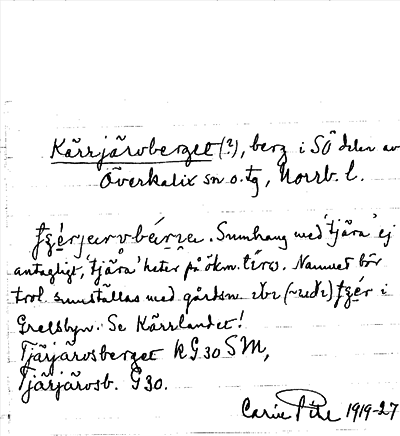 Kärrjärvberget (?), berg i SÖ delen av
Överkalix sn o. tg, Norrb. l.
Sumhang med 'tjära' ej
antagligt, 'tjära' heter på ökm. Namnet bör
trol. sammställas med gårdsn. i
Grelsbyn. Se Kärrlandet!
Tjärjärvsberget RG 30 SM,
Tjärjärvsb. G30.
Carin Pihl 1919-27